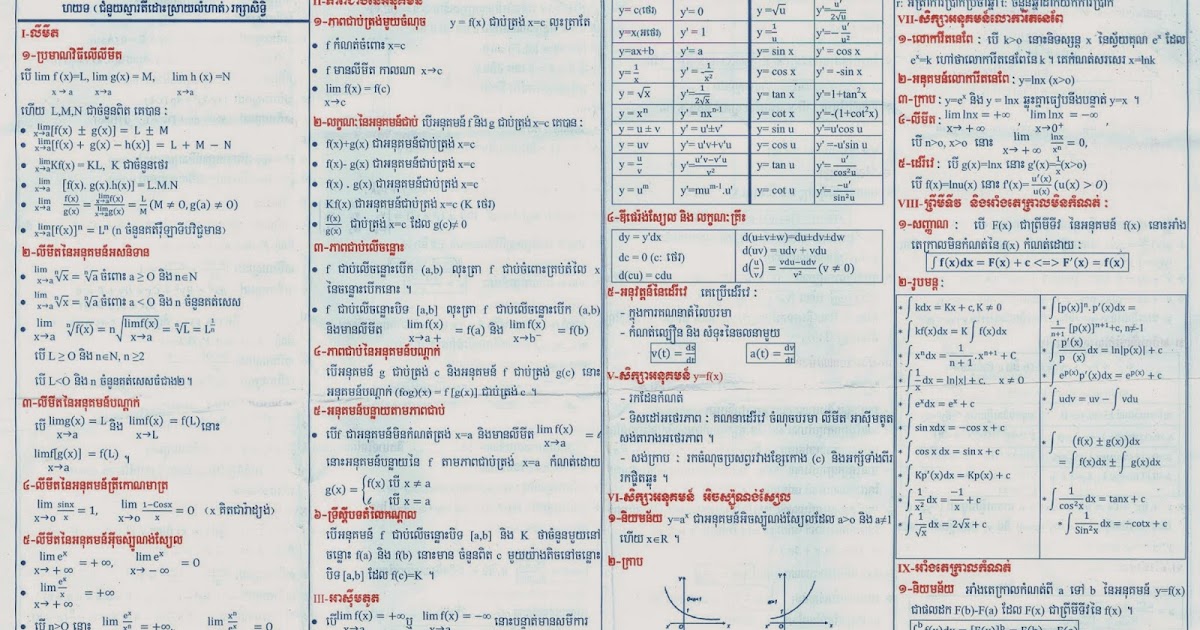 ហយទ១ (ជំនួយស្មារតីដោះស្រាយលំហាត់) រក្សាសិទ្ធិ
I-លីមីត
១-ប្រមាណវិធីលើលីមីត
បើ lim f(x)=L, lim g(x) = M, lim h(x) =N
x → a x→a x→a
ហើយ L,M,N ជាចំនួនពិត គេបាន :
• lim x→a [f(x) ± g(x)] = L ± M
• lim x→a [f(x) + g(x) − h(x)] = L + M − N
• lim x→a Kf(x) = KL, K ជាចំនួនថេរ
• lim x→a [f(x). g(x).h(x)] = L.M.N
• lim x→a f(x)/g(x) = lim x→a f(x)/lim x→a g(x) = L/M (M ≠ 0, g(a) ≠ 0)
• lim x→a [f(x)]ⁿ = Lⁿ (n ចំនួនគត់រឺឡាទីបវិជ្ជមាន)
២-លីមីតនៃអនុគមន៍អសនិទាន
• lim x→a ⁿ√x = ⁿ√a ចំពោះ a ≥ 0 និង n∈N
• lim x→a ⁿ√x = ⁿ√a ចំពោះ a < 0 និង n ចំនួនគត់សេស
• lim x→a ⁿ√f(x) = n√limf(x) x→a = ⁿ√L = L^(1/n)
បើ L ≥ 0 និង n∈N, n ≥2
បើ L<0 និង n ចំនួនគត់សេសធំជាង២។
៣-លីមីតនៃអនុគមន៍បណ្តាក់
បើ limg(x) = L x→a និង limf(x) = f(L) x→L នោះ
limf[g(x)] = f(L) x→a ។
៤-លីមីតនៃអនុគមន៍ត្រីកោណមាត្រ
lim x→0 sinx/x = 1, lim x→0 1−Cosx/x = 0 (x គិតជារ៉ាដ្យង់)
៥-លីមីតនៃអនុគមន៍អ៊ិចស្ប៉ូណង់ស្យែល
• lim eˣ x→+∞ = +∞, lim eˣ x→−∞ = 0
• lim eˣ/x x→+∞ = +∞
• បើ n>0 នោះ lim eˣ/xⁿ = +∞, lim xⁿ/eˣ = 0
១-ភាពជាប់ត្រង់មួយចំណុច y = f(x) ជាប់ត្រង់ x=c លុះត្រាតែ
• f កំណត់ចំពោះ x=c
• f មានលីមីត កាលណា x→c
• lim f(x) = f(c)
x→c
២-លក្ខណៈនៃអនុគមន៍ជាប់ បើអនុគមន៍ f និង g ជាប់ត្រង់ x=c គេបាន :
• f(x)+g(x) ជាអនុគមន៍ជាប់ត្រង់ x=c
• f(x)- g(x) ជាអនុគមន៍ជាប់ត្រង់ x=c
• f(x) . g(x) ជាអនុគមន៍ជាប់ត្រង់ x=c
• Kf(x) ជាអនុគមន៍ជាប់ត្រង់ x=c (K ថេរ)
• f(x)/g(x) ជាប់ត្រង់ x=c ដែល g(c)≠ 0
៣-ភាពជាប់លើចន្លោះ
• f ជាប់លើចន្លោះបើក (a,b) លុះត្រា f ជាប់ចំពោះគ្រប់តំលៃ x
នៃចន្លោះបើកនោះ ។
• f ជាប់លើចន្លោះបិទ [a,b] លុះត្រា f ជាប់លើចន្លោះបើក (a,b)
និងមានលីមីត lim f(x) x→a+ = f(a) និង lim f(x) x→b− = f(b)
៤-ភាពជាប់នៃអនុគមន៍បណ្តាក់
បើអនុគមន៍ g ជាប់ត្រង់ c និងអនុគមន៍ f ជាប់ត្រង់ g(c) នោះ
អនុគមន៍បណ្តាក់ (fog)(x) = f [g(x)] ជាប់ត្រង់ c ។
៥-អនុគមន៍បន្លាយតាមភាពជាប់
បើf ជាអនុគមន៍មិនកំណត់ត្រង់ x=a និងមានលីមីត lim f(x) x→a =
នោះអនុគមន៍បន្លាយនៃ f តាមភាពជាប់ត្រង់ x=a កំណត់ដោយ
g(x) = { f(x) បើ x ≠ a
បើ x = a
៦-ទ្រឹស្តីបទតំលៃកណ្តាល
បើអនុគមន៍ f ជាប់លើចន្លោះបិទ [a,b] និង K ថាចំនួនមួយនៅ
ចន្លោះ f(a) និង f(b) នោះមាន ចំនួនពិត c មួយយ៉ាងតិចនៅចន្លោះ
បិទ [a,b] ដែល f(c)=K ។
III-អាស៊ីមតូត
បើ lim f(x) = +∞ ឬ lim f(x) = −∞ នោះបន្ទាត់មានសមីការ
y= c(ថេរ) y'= 0 y=√u y'= u'/2√u
y=x(អថេរ) y' = 1 y= 1/u y'= −u'/u²
y=ax+b y'= a y= sin x y' = cos x
y= 1/x y' = −1/x² y= cos x y' = -sin x
y = √x y'= 1/2√x y= tan x y'=1+tan²x
y = xⁿ y' = nxⁿ⁻¹ y= cot x y'=-(1+cot²x)
y= u ± v y' = u'±v' y= sin u y'=u'cos u
y= uv y' = u'v+v'u y= cos u y' = -u'sin u
y = u/v y'= u'v−v'u/v² y= tan u y'= u'/cos²u
y= uᵐ y'=muᵐ⁻¹.u' y= cot u y'= −u'/sin²u
៤-ឌីផេរ៉ង់ស្យែល និង លក្ខណៈគ្រឹះ
dy = y'dx d(u±v±w)=du±dv±dw
dc = 0 (c: ថេរ) d(uv) = udv + vdu
d(cu) = cdu d(u/v) = vdu−udv/v² (v ≠ 0)
៥-អនុវត្តន៍នៃដេរីវេ គេប្រើដេរីវេ :
- ក្នុងការគណនាតំលៃបរមា
- កំណត់ល្បឿន និង សំទុះនៃចលនាមួយ
v(t) = ds/dt a(t) = dv/dt
V-សិក្សាអនុគមន៍ y=f(x)
- រកដែនកំណត់
- ទិសដៅអថេរភាព : គណនាដេរីវេ ចំណុចបរមា លីមីត អាស៊ីមតូត
សង់តារាងអថេរភាព ។
- សង់ក្រាប : រកចំណុចប្រសព្វរវាងខ្សែកោង (c) និងអក្ស័ទាំងពីរ
រកផ្ចិតឆ្លុះ ។
VI-សិក្សាអនុគមន៍ អិចស្ប៉ូណង់ស្យែល
១-និយមន័យ y=aˣ ជាអនុគមន៍អិចស្ប៉ូណង់ស្យែលដែល a>0 និង a≠1
ហើយ x∈R ។
២-ក្រាប
VII-សិក្សាអនុគមន៍លោការីតនេពែ
១-លោការីតនេពែ : បើ k>0 នោះនិទស្សន្ត x នៃស្វ័យគុណ eˣ ដែល
eˣ=k ហៅថាលោការីតនេពែនៃ k ។ គេកំណត់សរសេរ x=lnk
២-អនុគមន៍លោការីតនេពែ : y=lnx (x>0)
៣-ក្រាប : y=eˣ និង y = lnx ឆ្លុះគ្នាធៀបនឹងបន្ទាត់ y=x ។
៤-លីមីត : lim lnx = +∞ x→+∞ , lim lnx = −∞ x→0⁺ ,
បើ n>0, x>0 នោះ lim x→+∞ lnx/xⁿ = 0,
៥-ដេរីវេ : បើ g(x)=lnx នោះ g'(x)=1/x(x>0)
បើ f(x)=lnu(x) នោះ f'(x)=u'(x)/u(x) (u(x) > 0)
VIII-ព្រីមីទីវ និងអាំងតេក្រាលមិនកំណត់ :
១-សញ្ញាណ : បើ F(x) ជាព្រីមីទីវ នៃអនុគមន៍ f(x) នោះអាំង
តេក្រាលមិនកំណត់នៃ f(x) កំណត់ដោយ :
∫ f(x)dx = F(x) + c <=> F'(x) = f(x)
២-រូបមន្ត :
* ∫ kdx = Kx + c, K ≠ 0
* ∫ kf(x)dx = K ∫ f(x)dx
* ∫ xⁿdx = 1/n+1 .xⁿ⁺¹ + c
* ∫ 1/x dx = ln|x| + c, x ≠ 0
* ∫ eˣdx = eˣ + c
* ∫ sin xdx = −cos x + c
* ∫ cos x dx = sin x + c
* ∫ Kp'(x)dx = Kp(x) + c
* ∫ 1/x² dx = −1/x + c
* ∫ 1/√x dx = 2√x + c
* ∫[p(x)]ⁿ. p'(x)dx =
1/n+1 [p(x)]ⁿ⁺¹+c, n≠-1
* ∫ p'(x)/p (x) dx = ln|p(x)| + c
* ∫ e^p(x) p'(x)dx = e^p(x) + c
* ∫ udv = uv − ∫ vdu
* ∫ (f(x) ± g(x))dx
= ∫ f(x)dx ± ∫ g(x)dx
* ∫ 1/cos²x dx = tanx + c
* ∫ 1/Sin²x dx = −cotx + c
IX-អាំងតេក្រាលកំណត់
១-និយមន័យ អាំងតេក្រាលកំណត់ពី a ទៅ b នៃអនុគមន៍ y=f(x)
ជាផលដក F(b)-F(a) ដែល F(x) ជាព្រីមីទីវនៃ f(x) ។